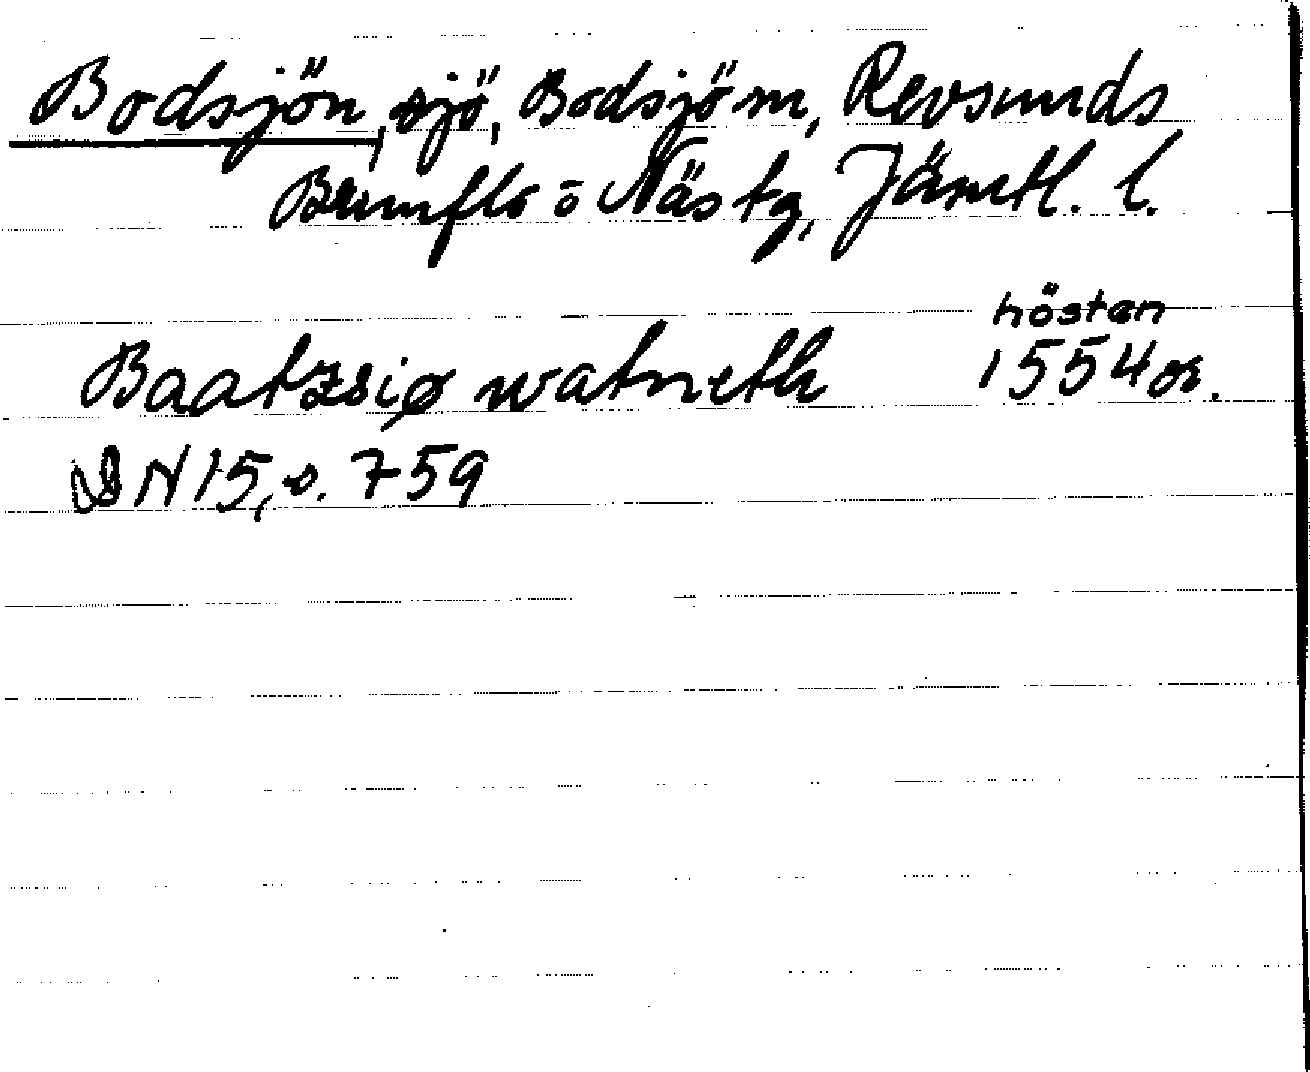 Bodsjön, sjö, Bodsjö sn, Revsunds,
Brunflo o Näs tg, Jämtl. l.
hösten
Baatzsiø watneth 1554 or.
DN 15, s. 759